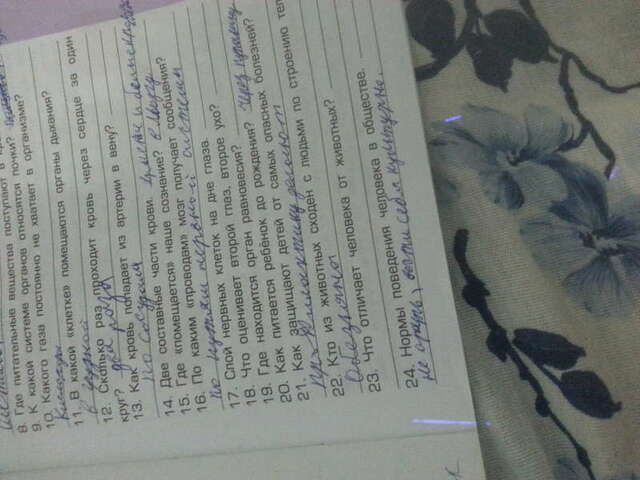 8. Где питательные вещества поступают в
9. К какой системе органов относятся почки?
10. Какого газа постоянно не хватает в организме?
Кислорода
11. В какой «клетке» помещаются органы дыхания?
в грудной
12. Сколько раз проходит кровь через сердце за один
круг? два раза
13. Как кровь попадает из артерии в вену?
по сосудам
14. Две составные части крови.
15. Где «помещается» наше сознание? в мозгу
16. По каким «проводам» мозг получает сообщения?
по путям нервной системы
17. Слой нервных клеток на дне глаза.
18. Что оценивает второй глаз, второе ухо?
19. Где находится орган равновесия?
20. Как питается ребёнок до рождения? Через пуповину
21. Как защищают детей от самых опасных болезней?
делают
22. Кто из животных сходен с людьми по строению тел
Обезьяны
23. Что отличает человека от животных?
24. Нормы поведения человека в обществе.
не орать, вести себя культурно.